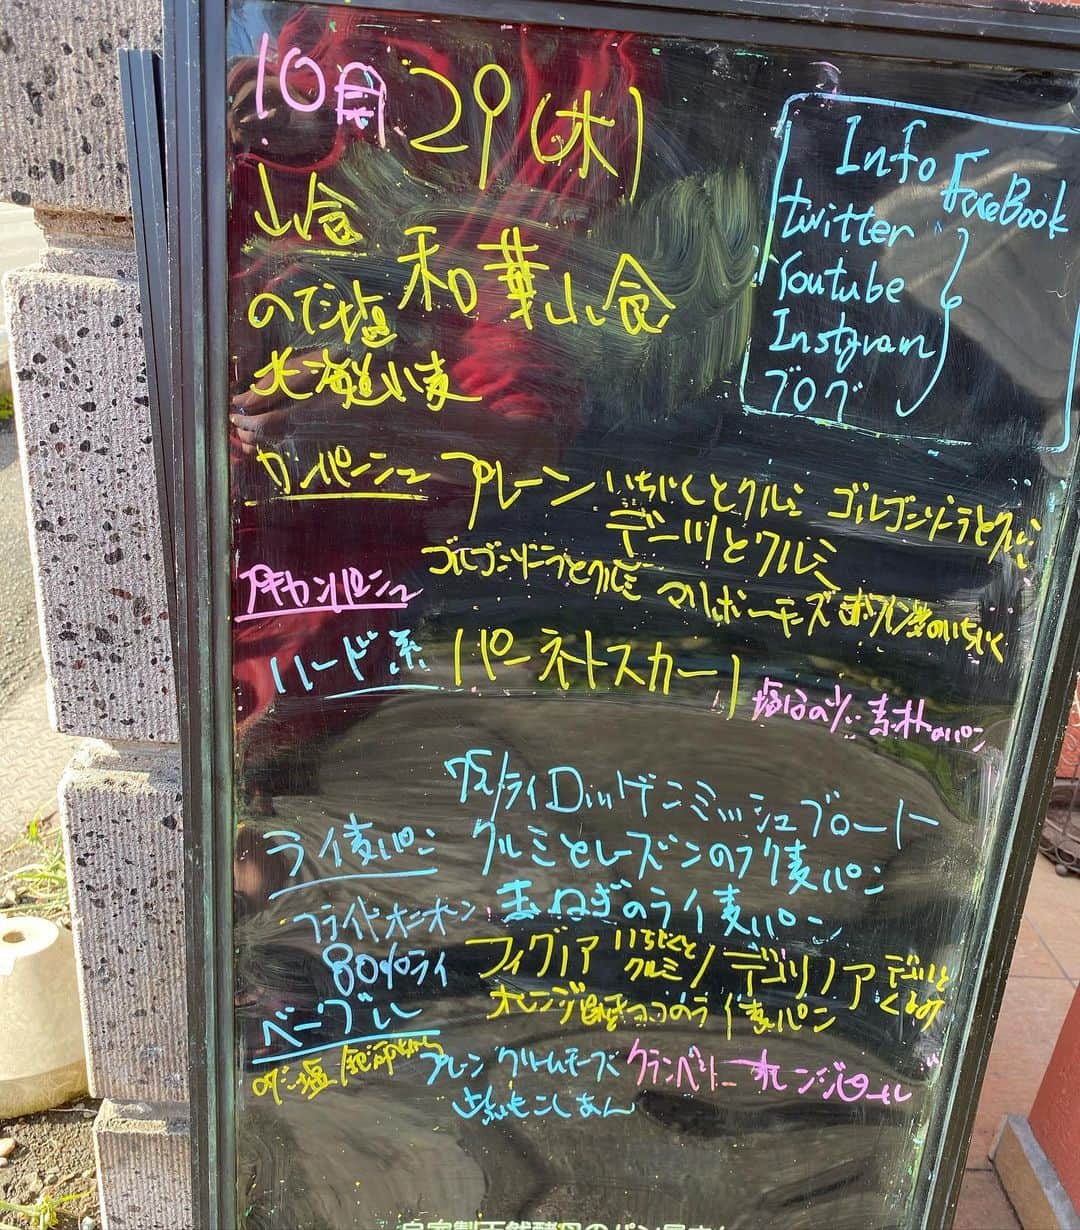 10月29(水)
Info
FaceBook
twitter
Youtube
Instgram
ブログ
山食 和華山食
のて塩
北海道小麦
カンパーニュ プレーン いちじくとクルミ ゴルゴンゾーラとクルミ
デーツとクルミ
プチカンパーニュ ゴルゴンゾーラとクルミ マリボーチーズ 赤ワイン漬のいちじく
ハード系 パーネトスカーノ
素朴のパン
75%ライ ミッシュブロート
ライ麦パン クルミとレーズンのライ麦パン
フライドオニオン 玉ねぎのライ麦パン
80%ライ フィグノア いちじくとクルミ / デコリノア
オレンジ ココのライ麦パン
ベーグル
プレーン クリームチーズ クランベリー オレンジピール
こしあん
自家製天然酵母のパン屋さん